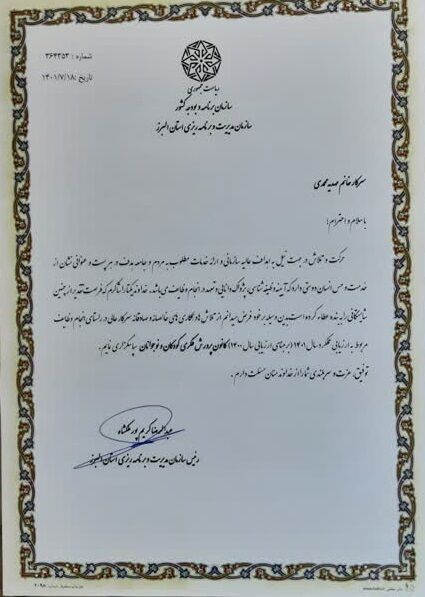 شماره : ۳۶۴۳۵۳
تاریخ : ۱۴۰۱/۷/۱۸
ریاست جمهوری
سازمان برنامه و بودجه کشور
سازمان مدیریت و برنامه ریزی استان البرز
سرکار خانم محمدی
با سلام و احترام؛
حرکت و تلاش در جهت نیل به اهداف عالیه سازمانی و ارائه خدمات مطلوب به مردم و جامعه هدف در هر پست و عنوانی نشان از
خدمت و حس انسان دوستی دارد که آیینه وظیفه شناسی، پژواک دانایی و تعهد در انجام وظایف می باشد. خداوند یکتا را شاکرم که فرصت تقدیر از چنین
شایستگانی را به بنده عطاء کرده است بدین وسیله بر خود فرض میدانم از تلاش ها و همکاری های خالصانه و صادقانه سرکار عالی در راستای انجام وظایف
مربوط به ارزیابی عملکرد سال ۱۴۰۱ (بر مبنای ارزیابی سال ۱۴۰۰) کانون پرورش فکری کودکان و نوجوانان سپاسگزاری نمایم.
توفیق، عزت و سربلندی شما را از خداوند منان مسئلت دارم.
عبدالمحمدرضا کریم پور ملکشاه
رئیس سازمان مدیریت و برنامه ریزی استان البرز